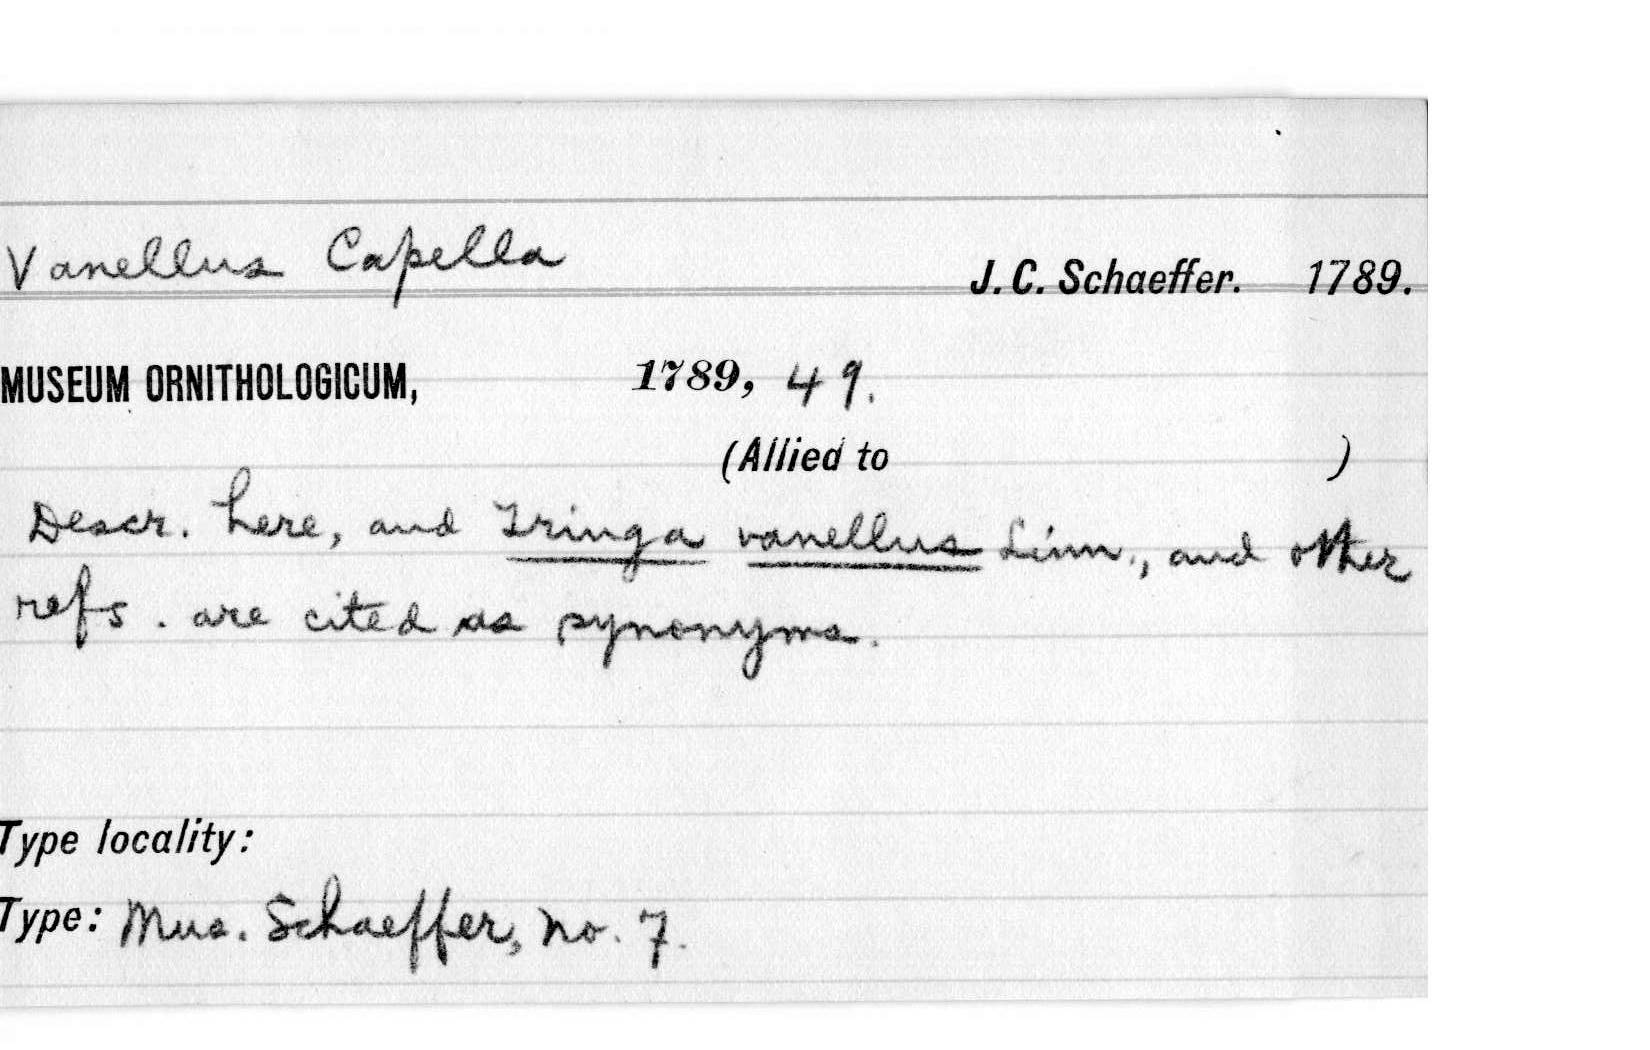 Vanellus Capella
J. C. Schaeffer. 1789.
MUSEUM ORNITHOLOGICUM, 1789, 49.
(Allied to )
Descr. here, and Tringa vanellus Linn., and other
refs. are cited as synonyms.
Type locality:
Type: Mus. Schaeffer, no. 7.